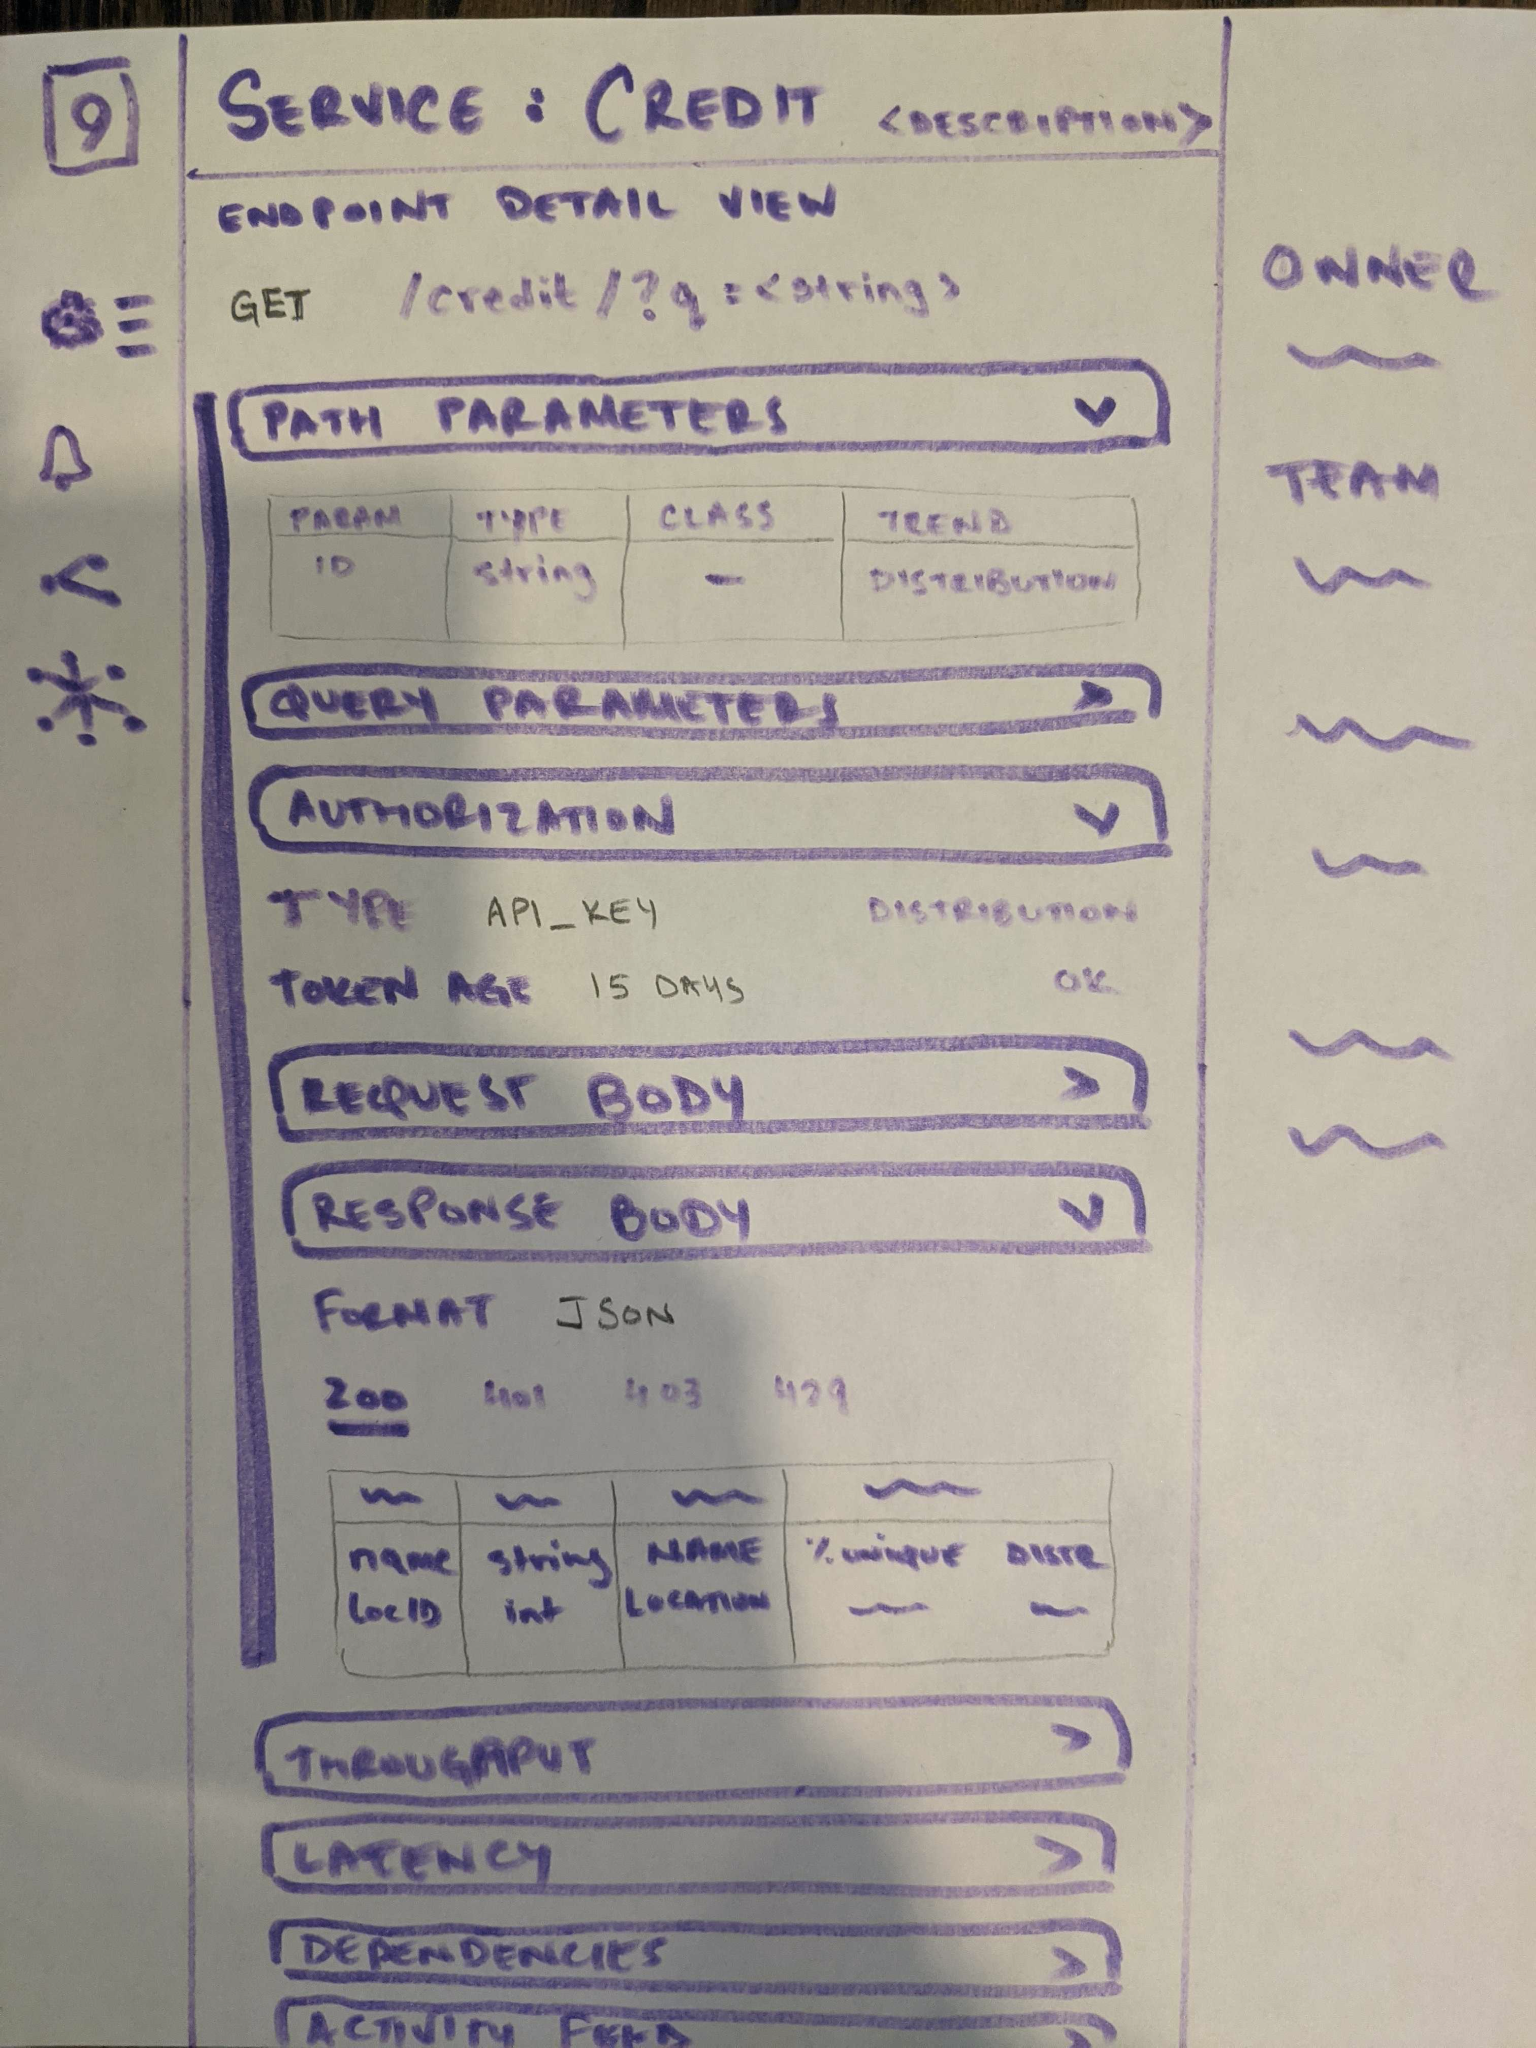 9
SERVICE : CREDIT <DESCRIPTION>
ENDPOINT DETAIL VIEW
GET /credit/?q=<string>
PATH PARAMETERS
PARAM TYPE CLASS TREND
ID string — DISTRIBUTION
QUERY PARAMETERS
AUTHORIZATION
TYPE API_KEY DISTRIBUTION
TOKEN AGE 15 DAYS OK
REQUEST BODY
RESPONSE BODY
FORMAT JSON
200 401 403 429
name string NAME % UNIQUE DISTR
locID int LOCATION
THROUGHPUT
LATENCY
DEPENDENCIES
ACTIVITY FEED
OWNER
TEAM